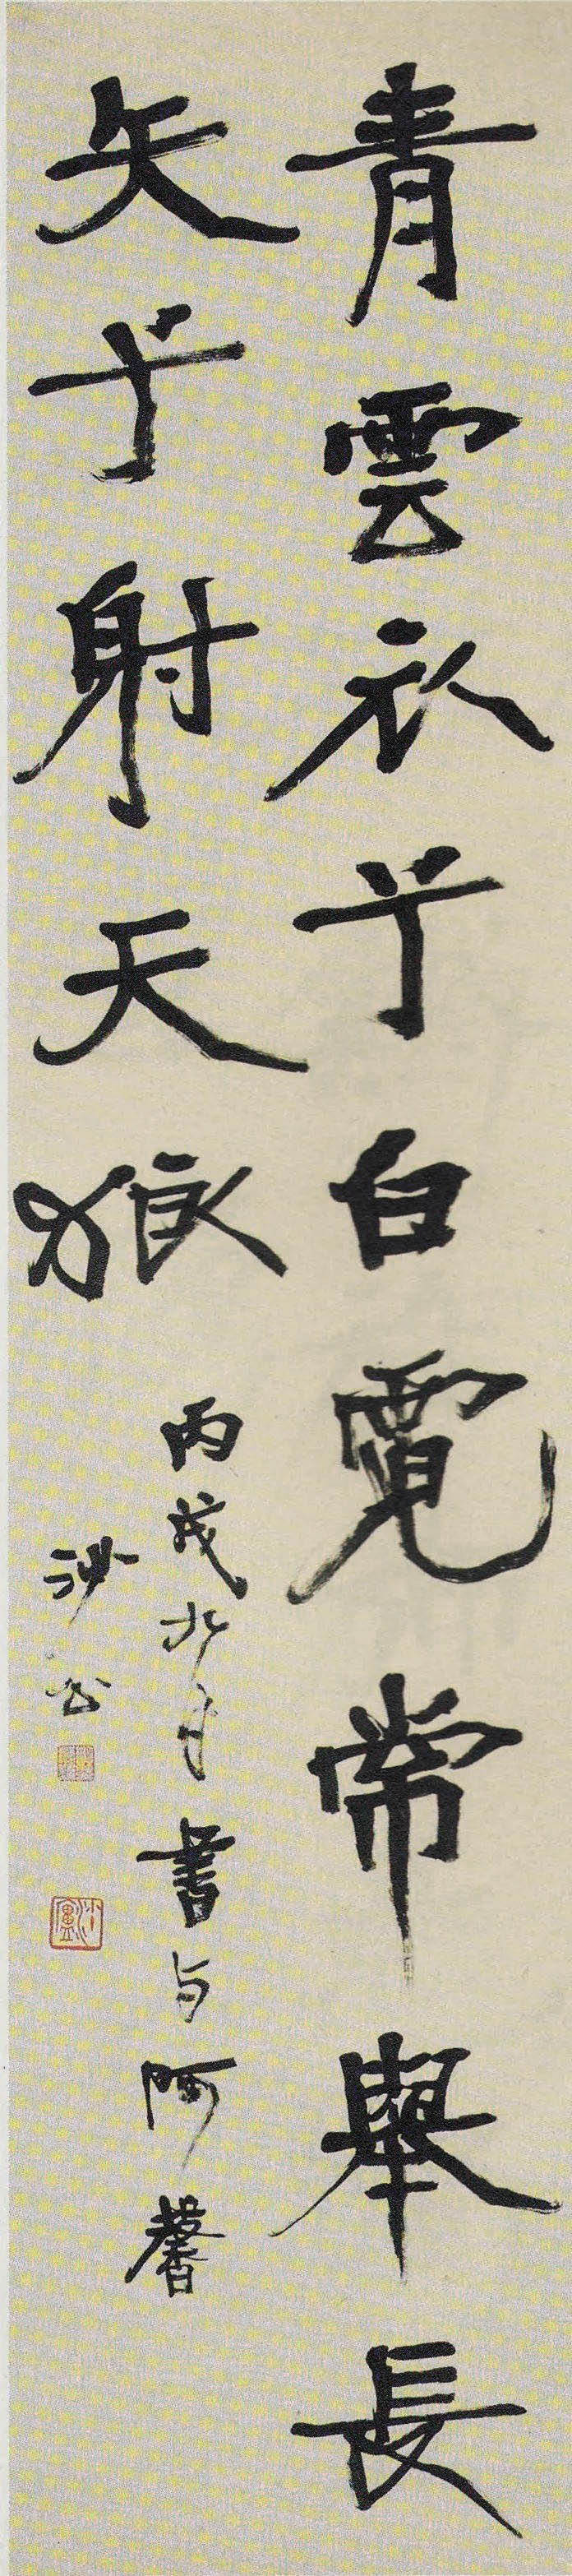 青雲衣兮白霓常舉長
矢兮射天狼
丙戌九月書与阿馨
沙